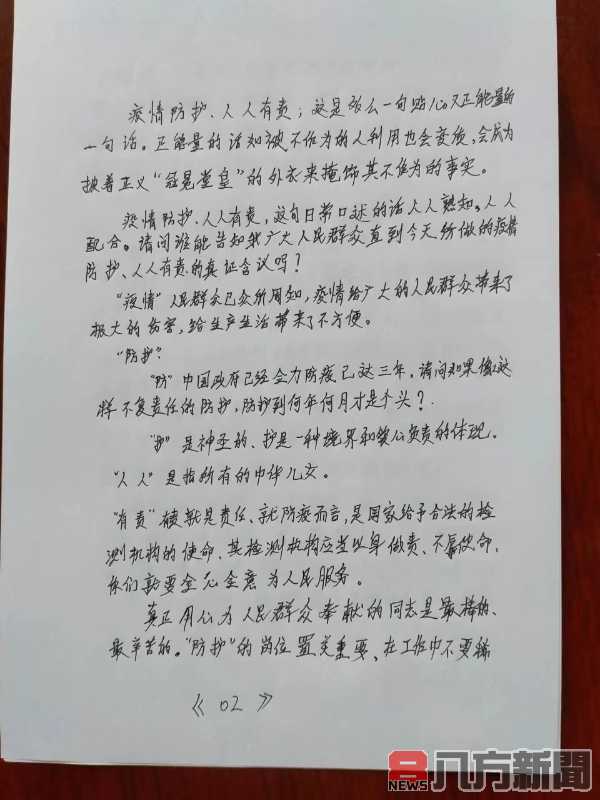 疫情防护、人人有责；这是多么一句贴心又正能量的
一句话。正能量的话如被不作为的人利用也会变质，会成为
披着正义“冠冕堂皇”的外衣来掩饰其不作为的事实。
疫情防护、人人有责，这句日常口述的话人人熟知。人人
配合。请问谁能告知我广大人民群众直到今天所做的疫情
防护、人人有责的真证含议吗？
“疫情”人民群众已众所周知，疫情给广大的人民群众带来了
极大的伤害，给生产生活带来了不方便。
“防护”？
“防”中国政府已经全力防疫已达三年。请问如果像这
样不负责任的防护，防护到何年何月才是个头？
“护”是神圣的、护是一种境界和爱心负责的体现。
“人人”是指所有的中华儿女。
“有责”就是责任、就防疫而言，是国家给予合法的检
测机构的使命、其检测机构应当以身做责、不辱使命、
你们就要全心全意为人民服务。
真正用心为人民群众奉献的同志是最棒的、
最辛苦的。“防护”的岗位至关重要、在工作中不要稀
《02》
八方新聞
NEWS